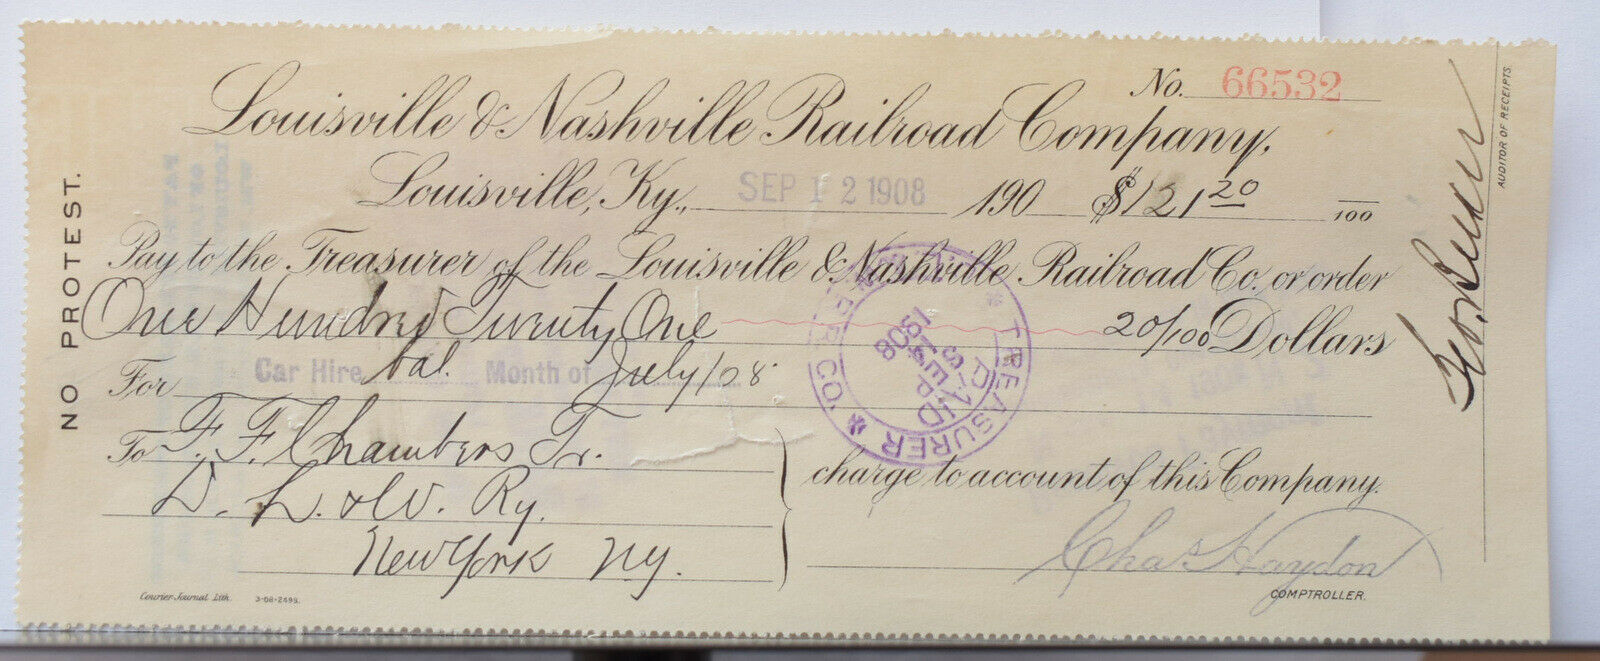 No. 66532
Louisville & Nashville Railroad Company,
Louisville, Ky., SEP 12 1908 190 $121 20 /100
NO PROTEST.
Pay to the Treasurer of the Louisville & Nashville Railroad Co. or order
One Hundred Twenty One 20/100 Dollars
For Car Hire bal. Month of July/08
To F. F. Chambers Tr.
D. L. & W. Ry.
New York NY.
charge to account of this Company.
Chas Haydon
COMPTROLLER.
TREASURER
PAID
SEP
1908
R.R. CO.
Geo.
AUDITOR OF RECEIPTS
Courier-Journal Lith. 3-08-2495.